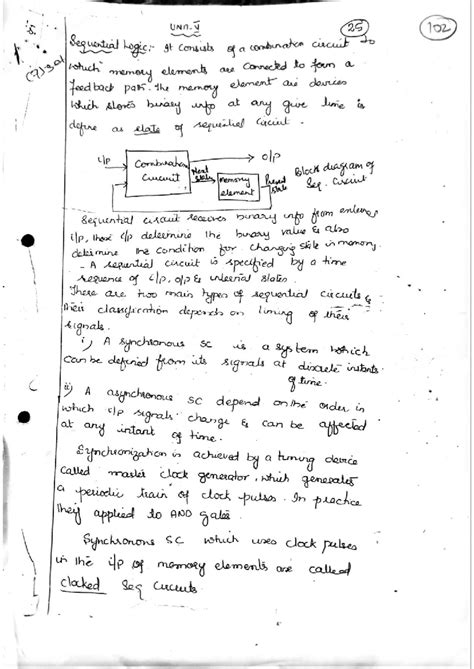 UNIT-V
25
102
Sequential Logic:- It consists of a combination circuit to
which memory elements are connected to form a
feedback path. The memory element are devices
which stores binary info at any give time is
define as state of sequential circuit.
I/P
Combination
Circuit
O/P
Next
state
memory
element
Present
state
Block diagram of
Seq. Circuit
Sequential circuit receives binary info from
i/p, these i/p determine the binary value & also
determine the condition for changing state in memory.
- A sequential circuit is specified by a time
sequence of i/p, o/p & internal states.
There are two main types of sequential circuits &
their classification depends on timing of their
signals.
i) A synchronous SC is a system which
can be defined from its signals at discrete instants
of time.
ii) A asynchronous SC depend on the order in
which i/p signals change & can be affected
at any intant of time.
Synchronization is achieved by a timing device
called master clock generator, which generates
a periodic train of clock pulses. In practice
they applied to AND gates.
Synchronous SC which uses clock pulses
in the i/p of memory elements are called
clocked Seq Circuits